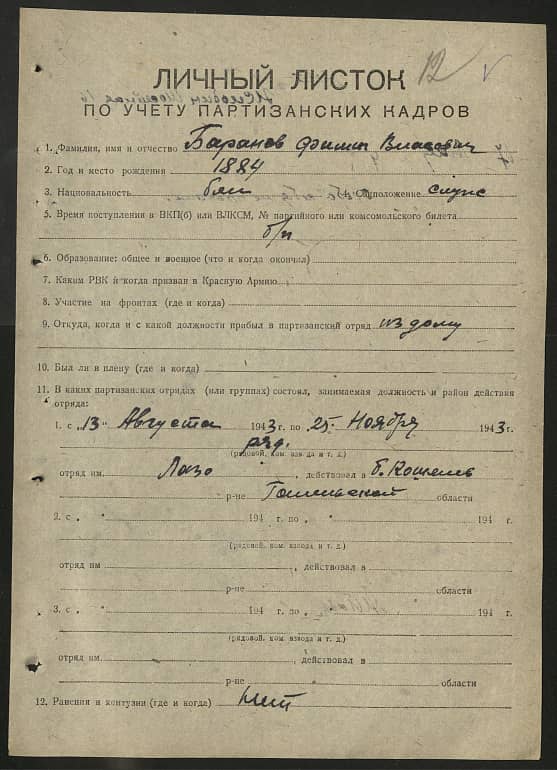 12
ЛИЧНЫЙ ЛИСТОК
ПО УЧЕТУ ПАРТИЗАНСКИХ КАДРОВ
1. Фамилия, имя и отчество Баранов Филипп Власович
2. Год и место рождения 1884
3. Национальность 4. Соцположение служ
5. Время поступления в ВКП(б) или ВЛКСМ, № партийного или комсомольского билета
б/п
6. Образование: общее и военное (что и когда окончил)
7. Каким РВК и когда призван в Красную Армию
8. Участие на фронтах (где и когда)
9. Откуда, когда и с какой должности прибыл в партизанский отряд из дому
10. Был ли в плену (где и когда)
11. В каких партизанских отрядах (или группах) состоял, занимаемая должность и район действия
отряда:
1. с „13“ Августа 1943 г. по 25. Ноября 1943 г.
ряд.
(рядовой, ком. взвода и т. д.)
отряд им. Лазо, действовал в б. Кошелев
р-не Гомельской области
2. с „ 194 г. по 194 г.
(рядовой, ком. взвода и т. д.)
отряд им , действовал в
р-не области
3. с „ 194 г. по 194 г.
(рядовой, ком. взвода и т. д.)
отряд им. , действовал в
р-не области
12. Ранения и контузии (где и когда) нет